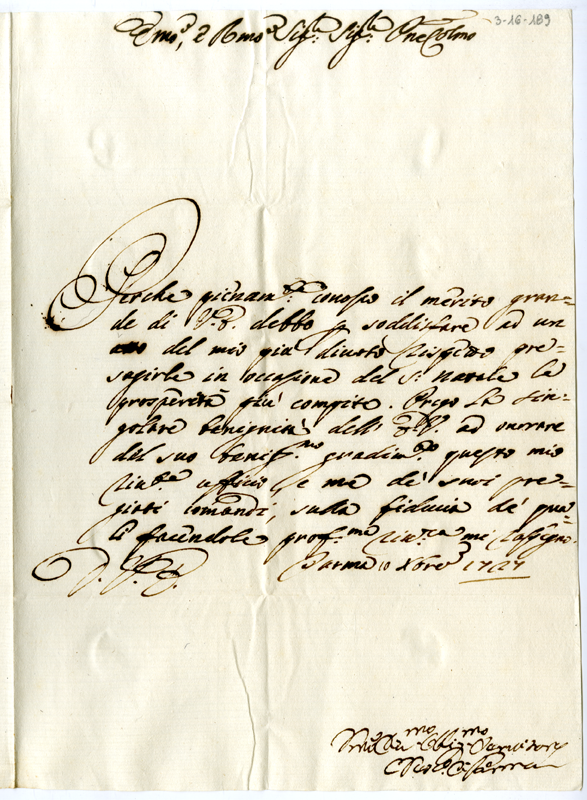 3-16-189
Emo, e Rmo Sigre Sigre Prone Colmo
Perche pienamte conosco il merito gran=
de di V. E. debbo p soddisfare ad un
del mio più divoto rispetto pre=
sagirle in occasione del S. Natale le
prosperità più compite. Prego la sin=
golare benignità dell' E. V. ad onorare
del suo benigmo gradimto questo mio
rivte ufficio, e me de' suoi pre=
giati comandi, sulla fiducia de' qua=
li facendole profma rivza mi rassegno.
D. V. E. Parma 10 Xbre 1727
Umo Devmo Obligmo Servidore
Vescо di Parma